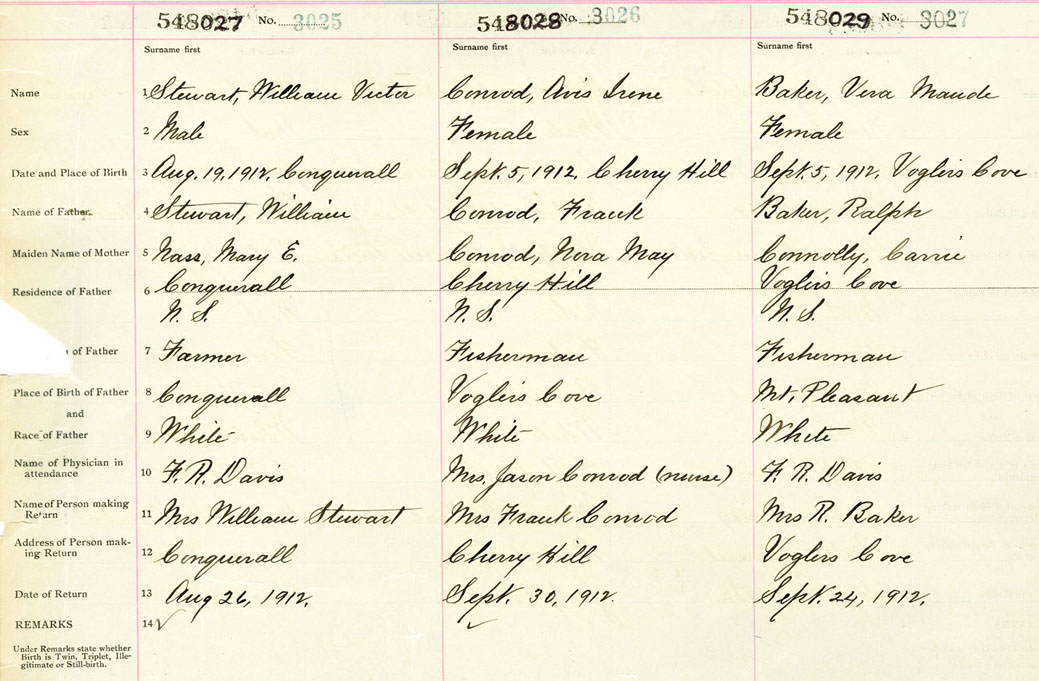 548027 No. 3025 548028 No. 3026 548029 No. 3027
Surname first Surname first Surname first
Name 1 Stewart, William Victor Conrod, Avis Irene Baker, Vera Maude
Sex 2 Male Female Female
Date and Place of Birth 3 Aug. 19, 1912, Conquerall Sept. 5, 1912, Cherry Hill Sept. 5, 1912, Voglers Cove
Name of Father 4 Stewart, William Conrod, Frank Baker, Ralph
Maiden Name of Mother 5 Nass, Mary E. Conrod, Nora May Connolly, Carrie
Residence of Father 6 Conquerall Cherry Hill Voglers Cove
N. S. N. S. N. S.
of Father 7 Farmer Fisherman Fisherman
Place of Birth of Father 8 Conquerall Voglers Cove Mt, Pleasant
and
Race of Father 9 White White White
Name of Physician in
attendance 10 F. R. Davis Mrs, Jason Conrod (nurse) F. R. Davis
Name of Person making
Return 11 Mrs William Stewart Mrs Frank Conrod Mrs R. Baker
Address of Person mak-
ing Return 12 Conquerall Cherry Hill Voglers Cove
Date of Return 13 Aug 26, 1912. Sept. 30, 1912. Sept. 24, 1912.
REMARKS 14
Under Remarks state whether
Birth is Twin, Triplet, Ille-
gitimate or Still-birth.